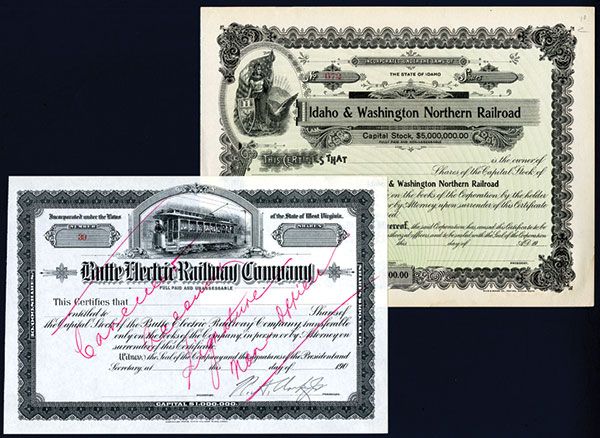 INCORPORATED UNDER THE LAWS OF
No 672
THE STATE OF IDAHO
Shares
Idaho & Washington Northern Railroad
Capital Stock, $5,000,000.00
FULL PAID AND NON-ASSESSABLE
THIS CERTIFIES THAT
is the owner of
Shares of the Capital Stock of
& Washington Northern Railroad
on the books of the Corporation by the holder
by Attorney upon surrender of this Certificate
the said Corporation has caused this Certificate to be
officers and to be sealed with the Seal of the Corporation
this day of A.D. 19
PRESIDENT
00.00
Incorporated under the Laws
of the State of West Virginia.
NUMBER
39
SHARES
Butte Electric Railway Company
FULL PAID AND UNASSESSABLE
This Certifies that
entitled to Shares of
the Capital Stock of the Butte Electric Railway Company, transferable
only on the books of the Company in person or by Attorney on
surrender of this Certificate.
Witness the Seal of the Company and the signatures of the President and
Secretary, at this day of 190
Signature
Officer
CAPITAL $1,000,000.